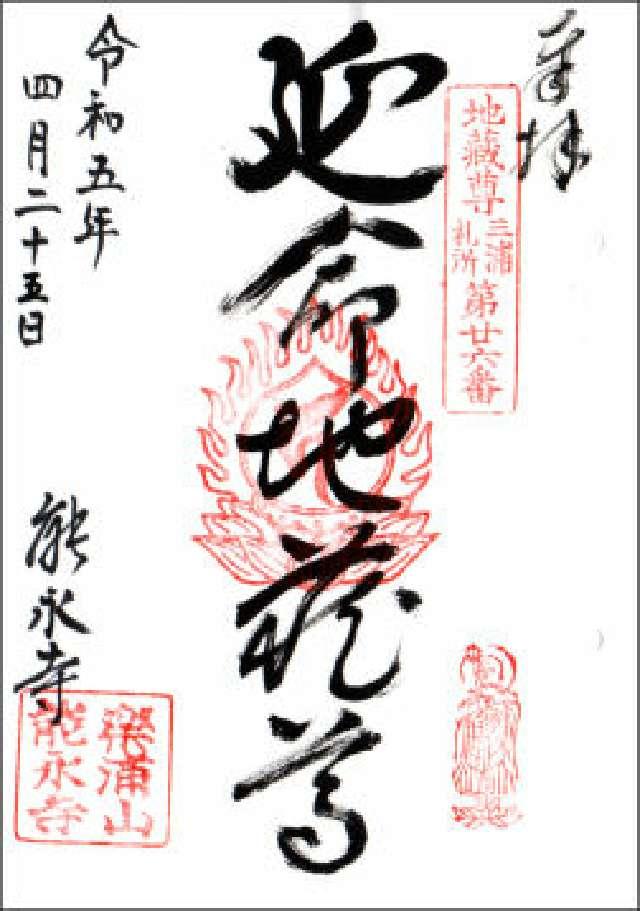 奉拝
地蔵尊三浦札所第廿六番
延命地蔵尊
令和五年
四月二十五日
能永寺
楽浦山
能永寺